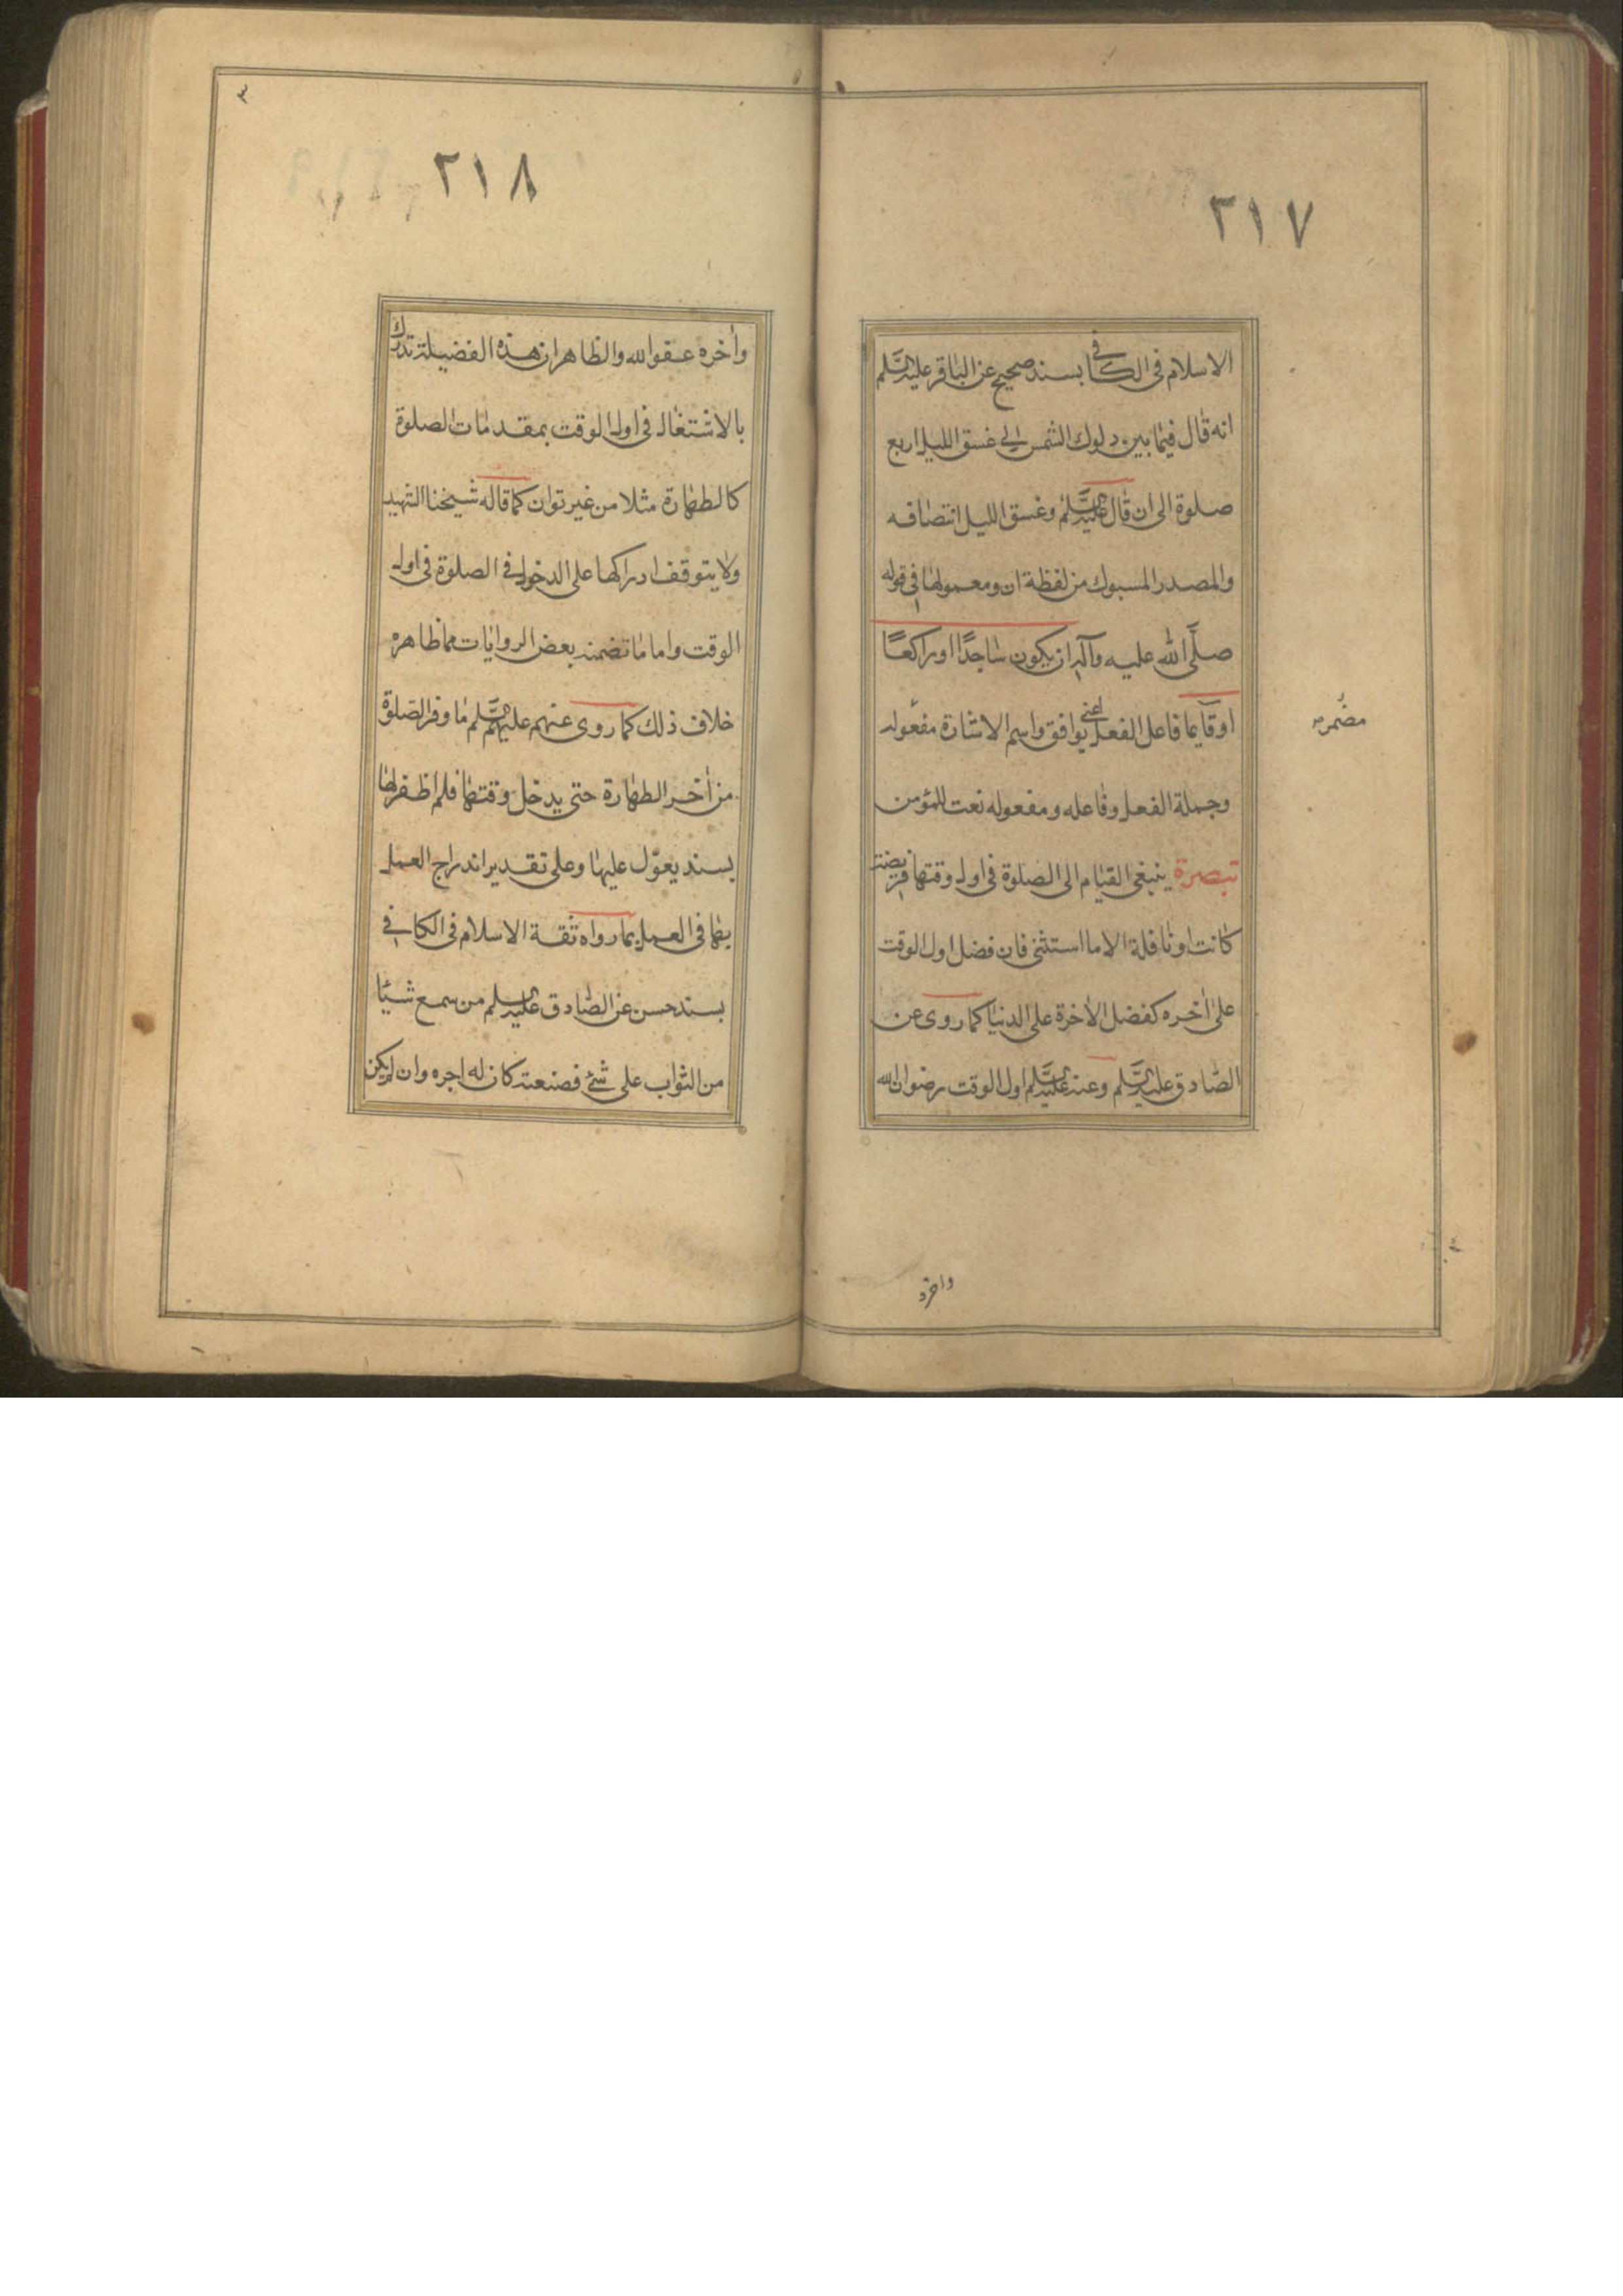 ٢١٧
الاسلام فى الكافى بسند صحيح عن الباقر عليه السلم
انه قال فيما بين دلوك الشمس الى غسق الليل اربع
صلوة الى ان قال عليه السلم وغسق الليل انتصافه
والمصدر المسبوك من لفظة ان ومعمولها فى قوله
صلَّى الله عليه وآله ان يكون ساجدًا او راكعًا
او قآيما فاعل الفعل اعنى يوافق واسم الاشارة مفعوله
مضمره
وجملة الفعل وفاعله ومفعوله نعت للمؤمن
تبصرة ينبغى القيام الى الصلوة فى اول وقتها فريضة
كانت او نافلة الا ما استثنى فان فضل اول الوقت
على اخره كفضل الاخرة على الدنيا كما روى عن
الصادق عليه السلم وعنه عليه السلم اول الوقت رضوان الله
واخره
٢١٨
واخره عفو الله والظاهر ان هذه الفضيلة تدرك
بالاشتغال فى اول الوقت بمقدمات الصلوة
كالطهارة مثلا من غير توان كما قاله شيخنا الشهيد
ولا يتوقف ادراكها على الدخول فى الصلوة فى اول
الوقت واما ما تضمنه بعض الروايات مما ظاهره
خلاف ذلك كما روى عنهم عليهم السلم ما وقر الصلوة
من أخر الطهارة حتى يدخل وقتها فلم اظفر لها
بسند يعوّل عليها وعلى تقدير اندراج العمل
بها فى العمل بما رواه ثقة الاسلام فى الكافى
بسند حسن عن الصادق عليه السلم من سمع شيئا
من الثواب على شئ فصنعه كان له اجره وان لم يكن